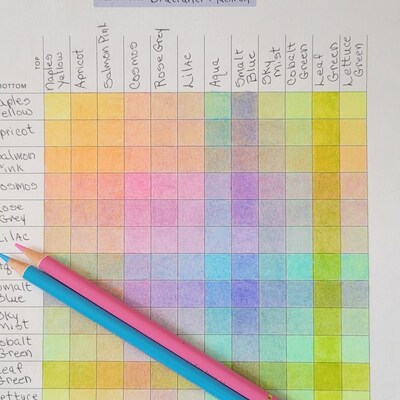 TOP
Naples
Yellow
Apricot
Salmon Pink
Cosmos
Rose Grey
Lilac
Aqua
Smalt
Blue
Sky
Mist
Cobalt
Green
Leaf
Green
Lettuce
Green
BOTTOM
aples
ellow
pricot
almon
ink
osmos
ose
Grey
Lilac
malt
Blue
Sky
Mist
obalt
Green
eaf
Green
ettuce